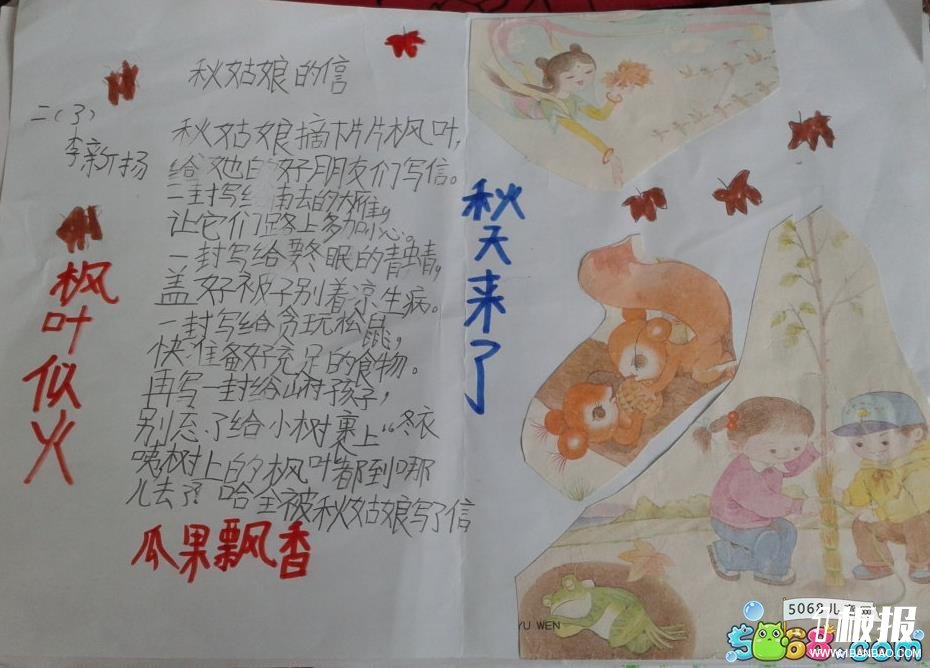 秋姑娘的信
二(3)
李新扬
秋姑娘摘下片片枫叶,
给她的好朋友们写信。
一封写给南去的大雁,
让它们路上多加小心。
一封写给冬眠的青蛙,
盖好被子别着凉生病。
一封写给贪玩松鼠,
快准备好充足的食物。
再写一封给山村孩子,
别忘了给小树裹上“冬衣
咦树上的枫叶都到哪
儿去了?哈全被秋姑娘写了信
枫叶似火
瓜果飘香
秋天来了
YU WEN
5068儿童画
板报
WWW.1BANBAO.COM